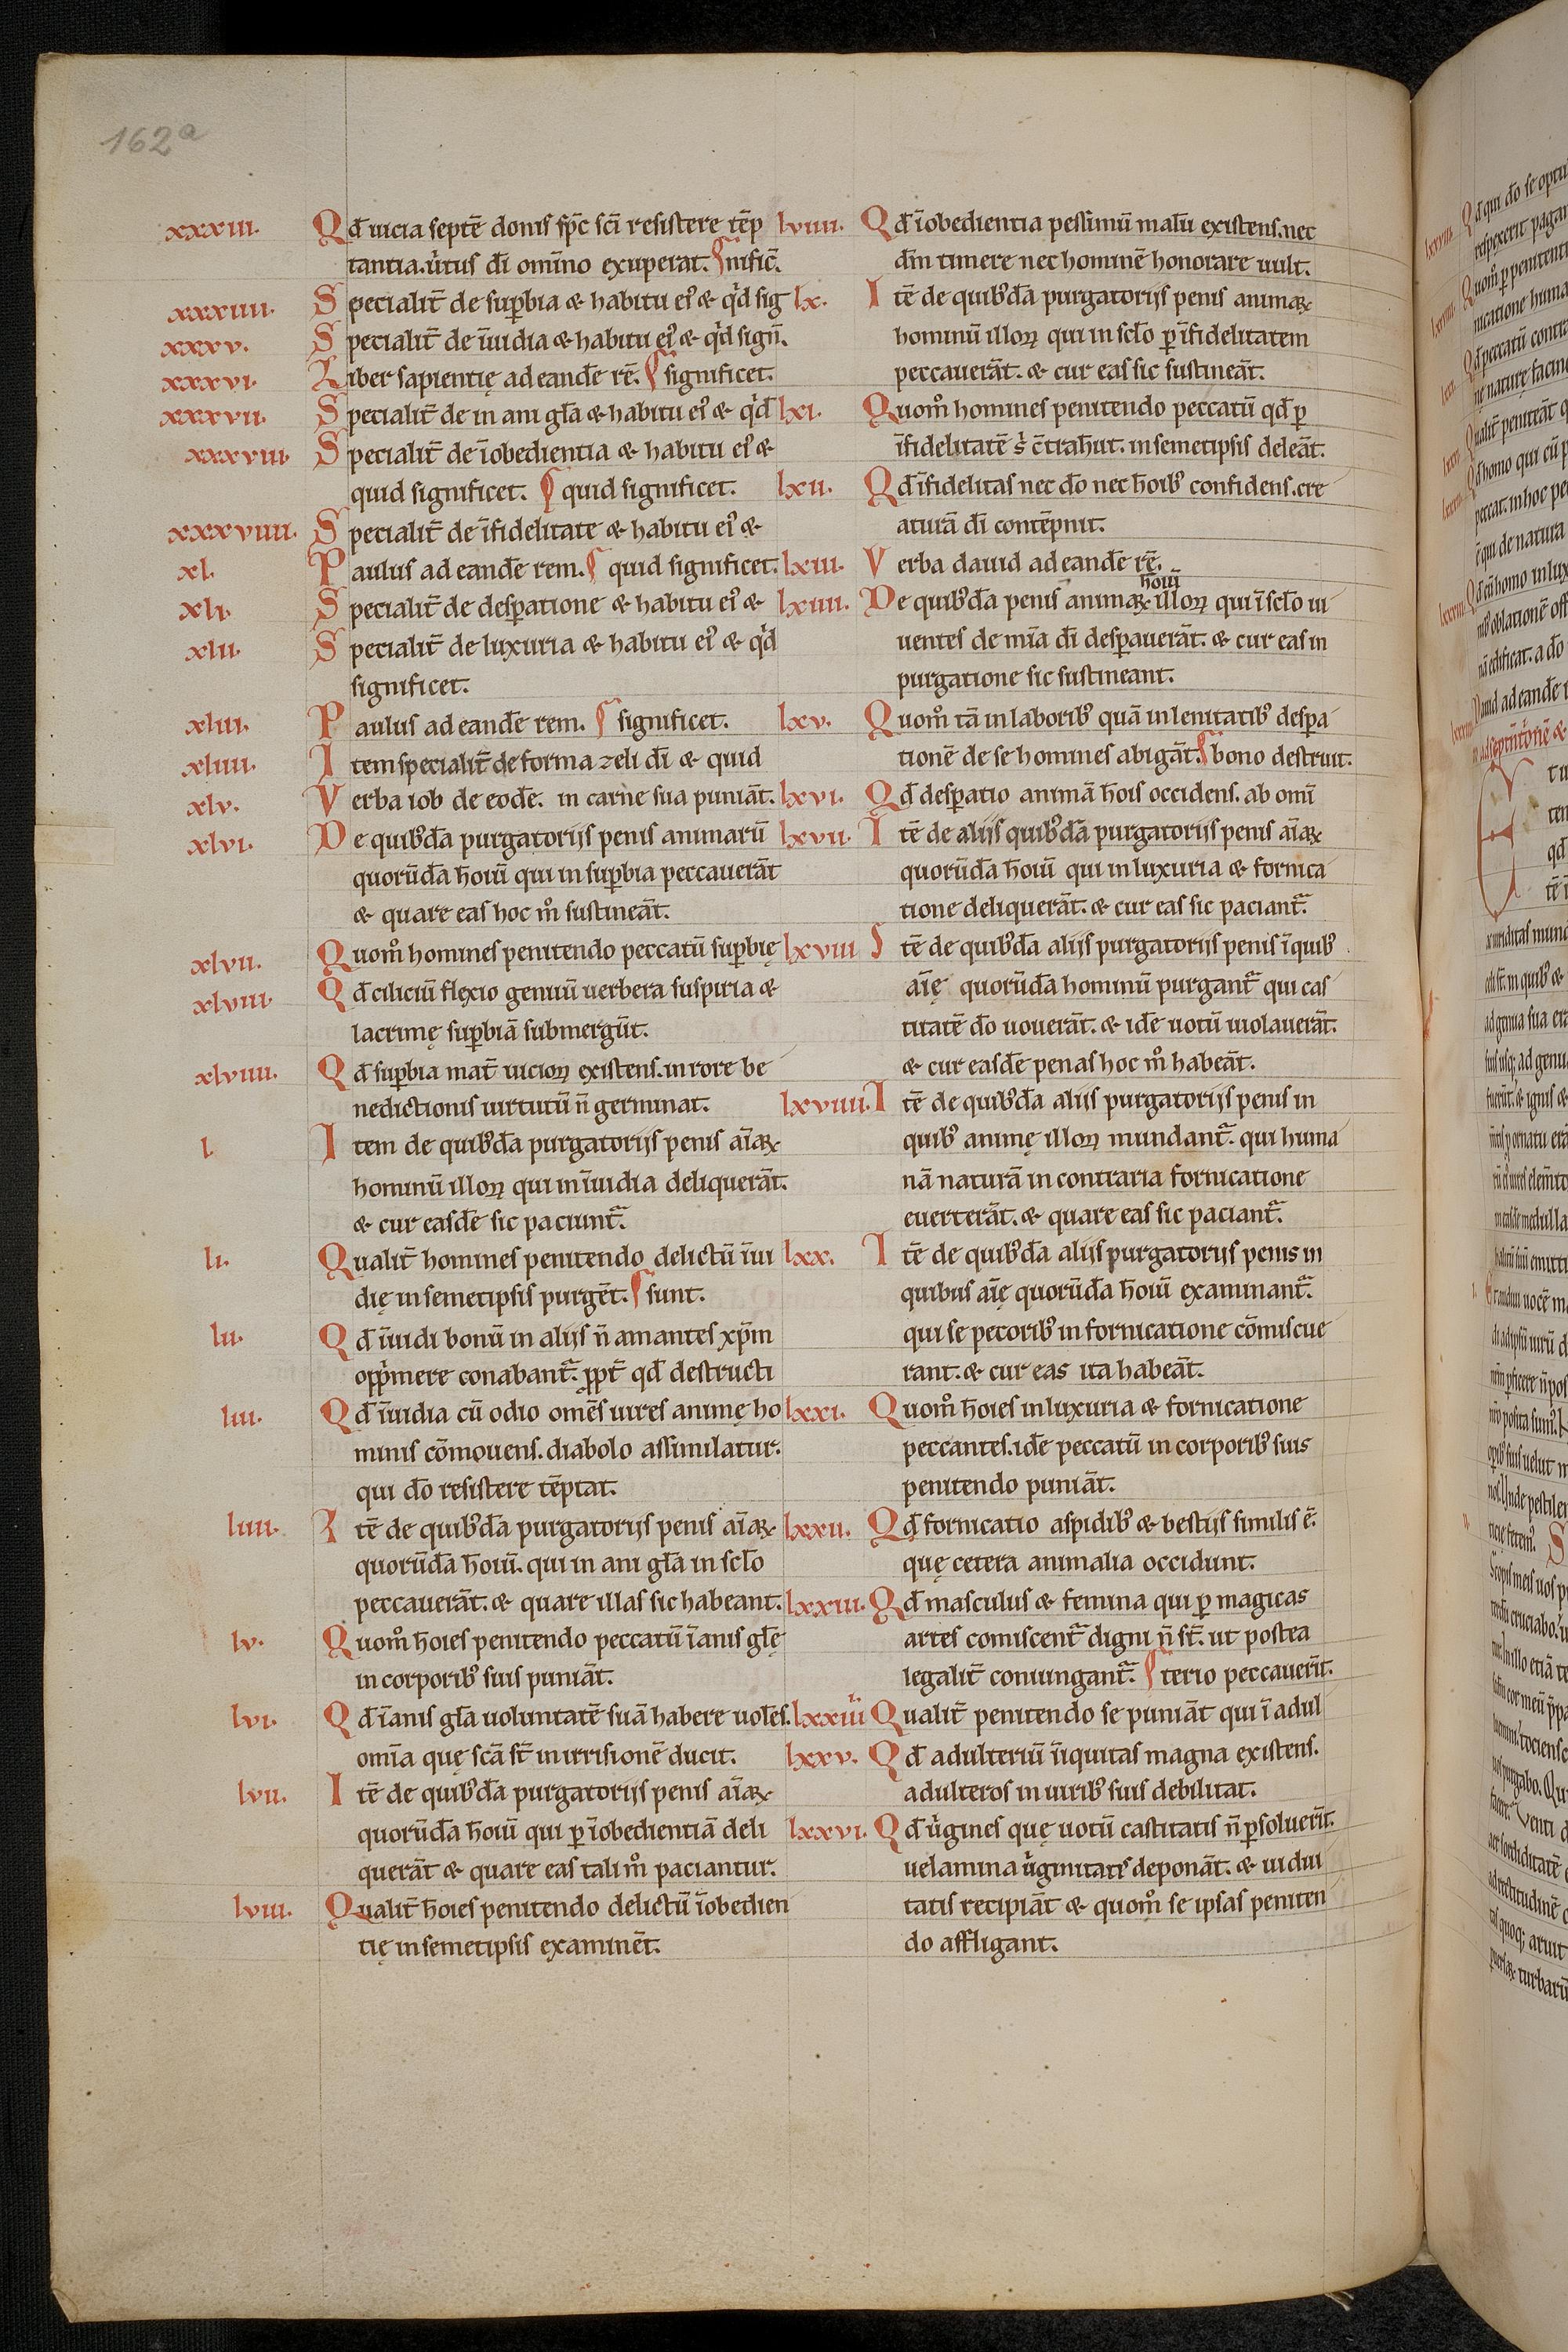 162a
xxxiii. Qd̄ uicia septē donis sp̄c sc̄i resistere tēp
tantia. u̓tus dī omīno exuperat. ¶ nific̄.
xxxiiii. Specialit̄ de sup̱bia & habitu ei᾿ & qͥd sig
xxxv. Specialit̄ de īuidia & habitu ei᾿ & qͥd sign̄.
xxxvi. Liber sapientię ad eandē rē. ¶ significet.
xxxvii. Specialit̄ de in ani gl̄a & habitu ei᾿ & qͥd
xxxviii. Specialit̄ de īobedientia & habitu ei᾿ &
quid significet. ¶ quid significet.
xxxviiii. Specialit̄ de īfidelitate & habitu ei᾿ &
xl. Paulus ad eandē rem. ¶ quid significet.
xli. Specialit̄ de desp̱atione & habitu ei᾿ &
xlii. Specialit̄ de luxuria & habitu ei᾿ & qͥd
significet.
xliii. Paulus ad eandē rem. ¶ significet.
xliiii. Item specialit̄ de forma zeli dī & quid
xlv. Verba iob de eodē. in carne sua puniāt.
xlvi. De quibᷤdā purgatorijs penis animarū
quorūdā hōiū qui in sup̱bia peccauerāt
& quare eas hoc mͦ sustineāt.
xlvii. Quomͦ homines penitendo peccatū sup̱bię
xlviii. Qd̄ ciliciū flexio genuū uerbera suspiria &
lacrimę sup̱biā submergūt.
xlviiii. Qd̄ sup̱bia mat̄ uicioꝝ existens. in rore be
nedictionis uirtutū n̄ germinat.
l. Item de quibᷤdā purgatorijs penis aīaꝝ
hominū illoꝝ qui in īuidia deliquerāt.
& cur easdē sic paciunt᷑.
li. Qualit̄ homines penitendo delictū īui
dię in semetipsis purgēt. ¶ sunt.
lii. Qd̄ īuidi bonū in alijs n̄ amantes xp̄m
opp̄mere conabant᷑. ꝓpt̄ qd̄ destructi
liii. Qd̄ īuidia cū odio omēs uires animę ho
minis cōmouens. diabolo assimilatur.
qui dō resistere tēptat.
liiii. Itē de quibᷤdā purgatorijs penis aīaꝝ
quorūdā hōiū. qui in ani gl̄a in scl̄o
peccauerāt. & quare illas sic habeant.
lv. Quomͦ hōies penitendo peccatū īanis gl̄ę
in corporibᷤ suis puniāt.
lvi. Qd̄ īanis gl̄a uoluntatē suā habere uolēs.
omīa quę scā st̄ in irrisionē ducit.
lvii. Itē de quibᷤdā purgatorijs penis aīaꝝ
quorūdā hōiū qui ꝑ īobedientiā deli
querāt & quare eas tali mͦ paciantur.
lviii. Qualit̄ hōies penitendo delictū īobedien
tię in semetipsis examinēt.
lviiii. Qd̄ īobedientia pessimū malū existens. nec
dm̄ timere nec hominē honorare uult.
lx. Itē de quibᷤdā purgatorijs penis animaꝝ
hominū illoꝝ qui in scl̄o ꝑ īfidelitatem
peccauerāt. & cur eas sic sustineāt.
lxi. Quomͦ homines penitendo peccatū qd̄ ꝑ
īfidelitatē s̓ c̄trahūt. in semetipsis deleāt.
lxii. Qd̄ īfidelitas nec dō nec hōibᷤ confidens. cre
aturā dī contēpnit.
lxiii. Verba dauid ad eandē rē.
lxiiii. De quibᷤdā penis animaꝝ hōiū illoꝝ qui ī scl̄o ui
uentes de mīa dī desp̱auerāt. & cur eas in
purgatione sic sustineant.
lxv. Quomͦ tā in laboribᷤ quā in lenitatibᷤ desp̱a
tionē de se homines abigāt. ¶ bono destruit.
lxvi. Qd̄ desp̱atio animā hōis occidens. ab omī
lxvii. Itē de alijs quibᷤdā purgatorijs penis aīaꝝ
quorūdā hōiū qui in luxuria & fornica
tione deliquerāt. & cur eas sic paciant᷑.
lxviii Itē de quibᷤdā alijs purgatorijs penis ī quibᷤ
aīę quorūdā hominū purgant᷑ qui cas
titatē dō uouerāt. & idē uotū uiolauerāt.
& cur easdē penas hoc mͦ habeāt.
lxviiii. Itē de quibᷤdā alijs purgatorijs penis in
quibᷤ animę illoꝝ mundant᷑. qui huma
nā naturā in contraria fornicatione
euerterāt. & quare eas sic paciant᷑.
lxx. Itē de quibᷤdā alijs purgatorijs penis in
quibus aīę quorūdā hōiū examinant᷑.
qui se pecoribᷤ in fornicatione cōmiscue
rant. & cur eas ita habeāt.
lxxi. Quomͦ hōies in luxuria & fornicatione
peccantes. idē peccatū in corporibᷤ suis
penitendo puniāt.
lxxii. Qd̄ fornicatio aspidibᷤ & bestijs similis ē.
quę cetera animalia occidunt.
lxxiii. Qd̄ masculus & femina qui ꝑ magicas
artes comiscent᷑ digni n̄ st̄. ut postea
legalit̄ coniungant᷑. ¶ terio peccauerīt.
lxxiiii Qualit̄ penitendo se puniāt qui ī adul
lxxv. Qd̄ adulteriū īiquitas magna existens.
adulteros in uiribᷤ suis debilitat.
lxxvi. Qd̄ u̓gines quę uotū castitatis n̄ p̱soluerīt.
uelamina u̓ginitatis deponāt. & uidui
tatis recipiāt & quomͦ se ipsas peniten
do affligant.